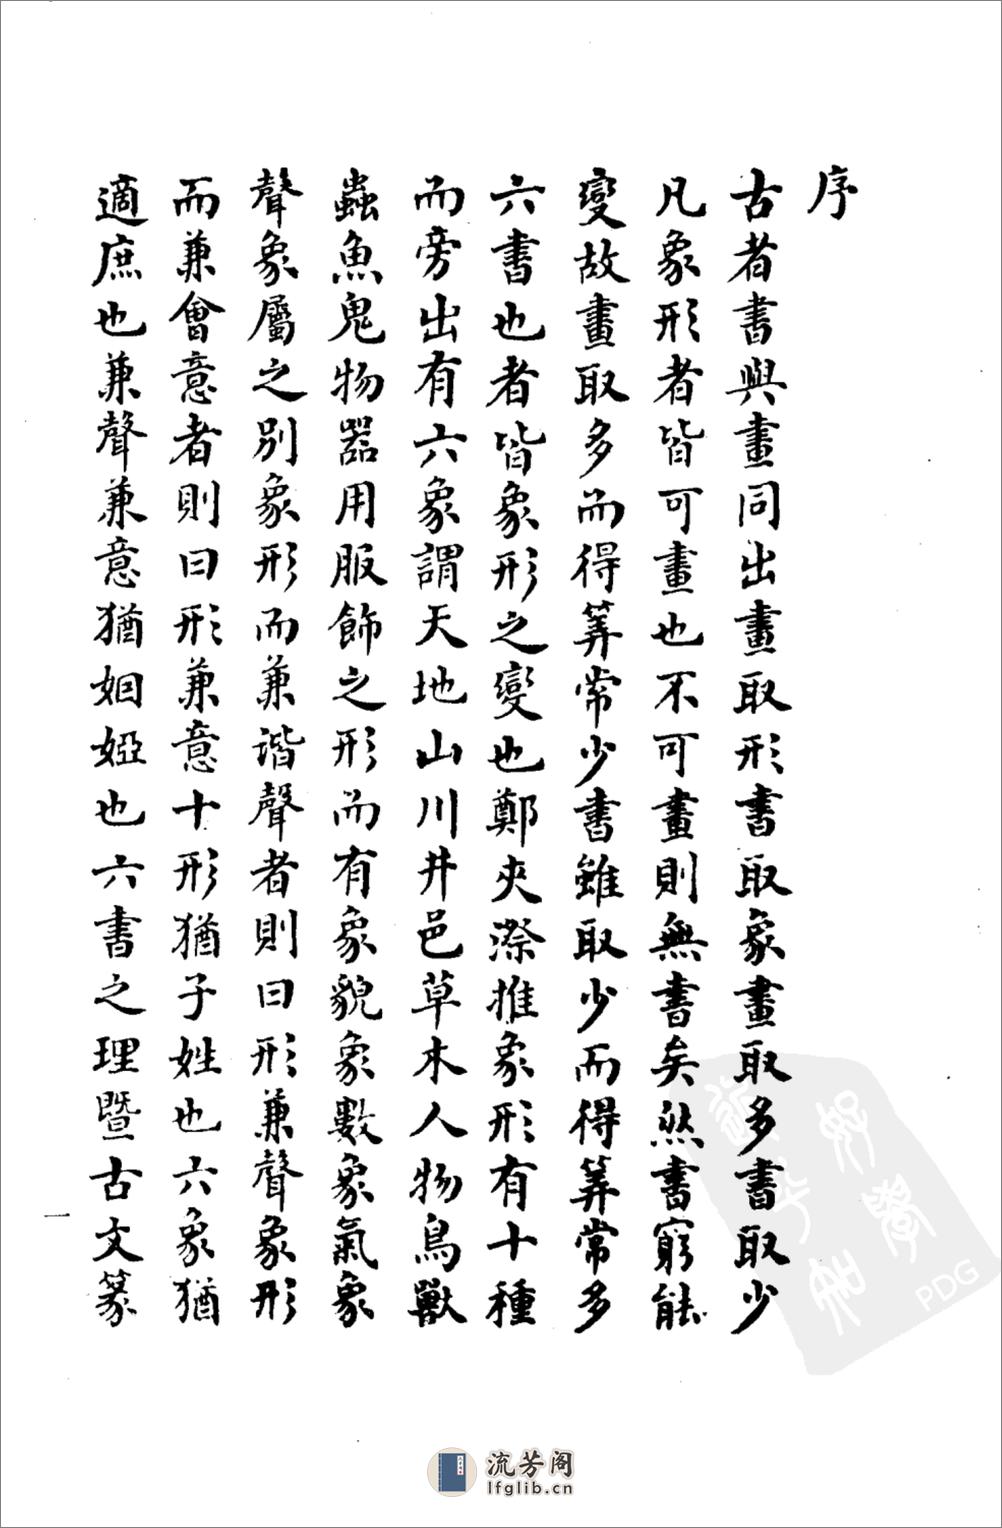 序
古者書與畫同出畫取形書取象畫取多書取少
凡象形者皆可畫也不可畫則無書矣然書窮能
變故畫取多而得筭常少書雖取少而得筭常多
六書也者皆象形之變也鄭夾漈推象形有十種
而旁出有六象謂天地山川井邑草木人物鳥獸
蟲魚鬼物器用服飾之形而有象貌象數象氣象
聲象屬之別象形而兼諧聲者則曰形兼聲象形
而兼會意者則曰形兼意十形猶子姓也六象猶
適庶也兼聲兼意猶姻婭也六書之理暨古文篆
一
PDG
流芳阁
lfglib.cn